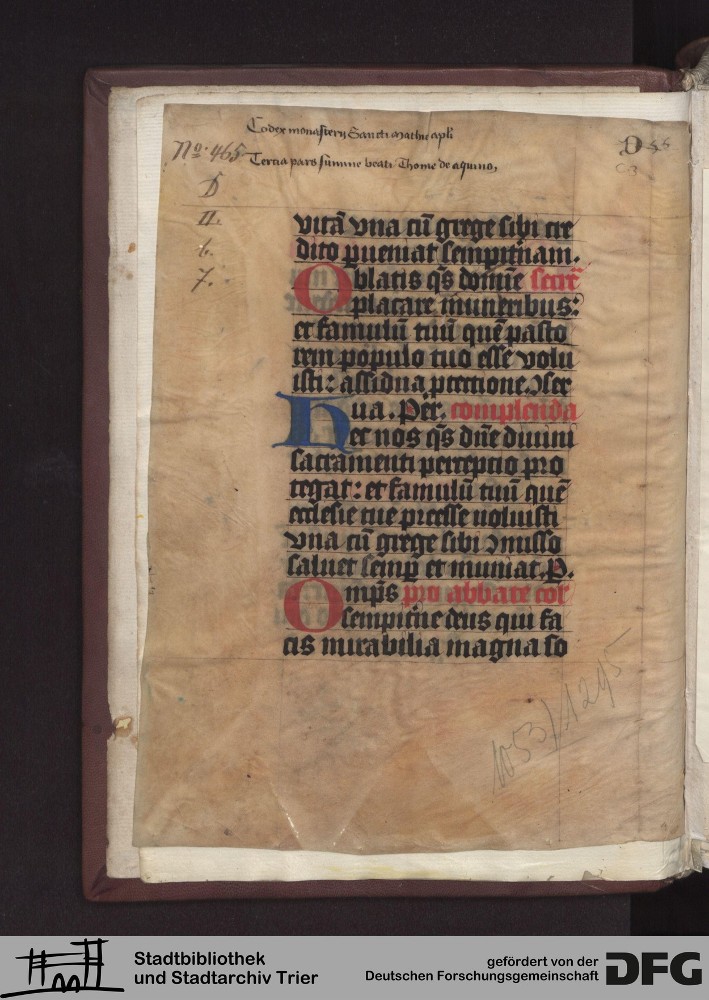 Codex monasterij Sancti Mathie apli
No. 465
Tercia pars summe beati Thome de aquino,
D
II.
6.
7.
vitā vna cū grege sibi cre
dito ꝑueniat sempit̄nam.
Oblatis qs̄ domīe secre᷑
placare muneribus:
et famulū tuū quē pasto
rem populo tuo esse volu
isti: assidua ꝓtectione ꝯser
ua. Per. complenda
Hec nos qs̄ dn̄e diuini
sacramenti perceptio pro
tegat: et famulū tuū quē
ecclesie tue p̄cesse uoluisti
vna cū grege sibi ꝯmisso
saluet semꝑ et muniat. P.
Omp̄s pro abbate cor
sempit̄ne deus qui fa
cis mirabilia magna so
1053/1295
Stadtbibliothek
und Stadtarchiv Trier
gefördert von der
Deutschen Forschungsgemeinschaft
DFG